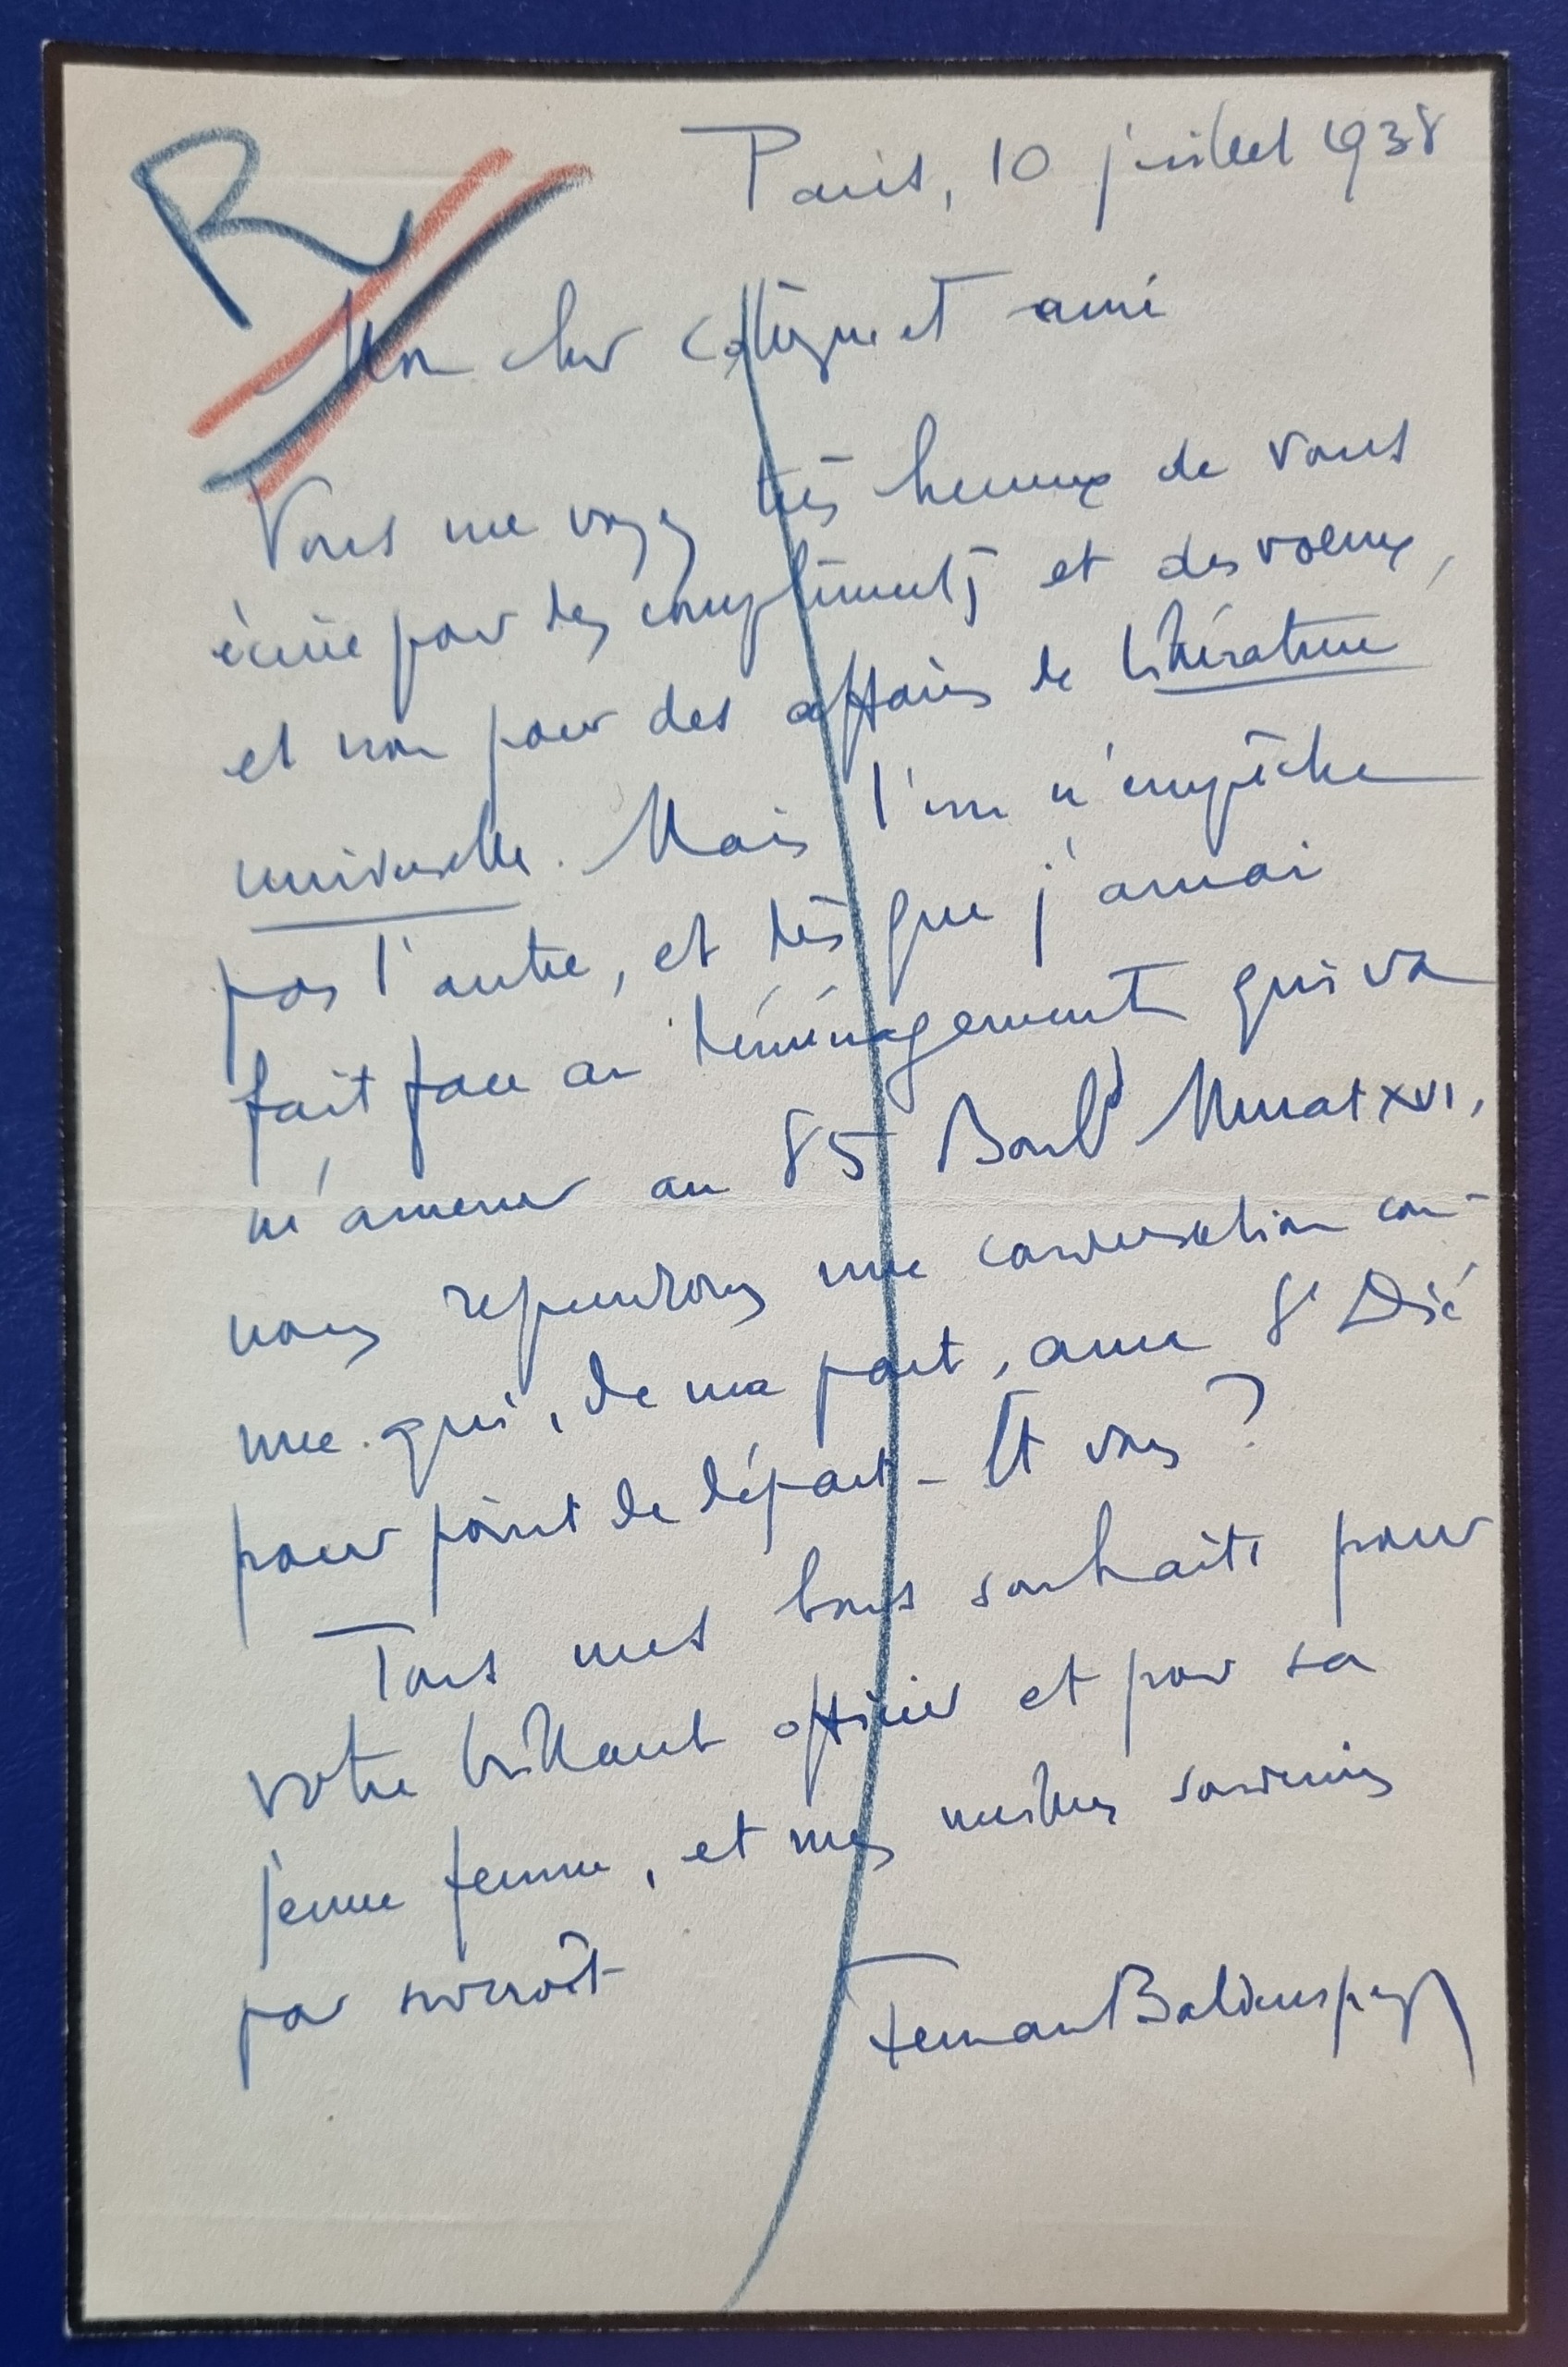 R
Paris, 10 juillet 1938
Mon cher collègue et ami
Vous me voyez très heureux de vous
écrire pour des compliments et des voeux,
et non pour des affaires de littérature
universelle. Mais l'un n'empêche
pas l'autre, et dès que j'aurai
fait face au déménagement qui va
m'amener au 85 Boul^d Murat XVI,
nous reprendrons une conversation com-
me qui, de ma part, aura S^t Dié
pour point de départ - Et vous ?
Tous mes bons souhaits pour
votre brillant officier et pour sa
jeune femme, et mes meilleurs souvenirs
par surcroît
Fernand Baldensperger